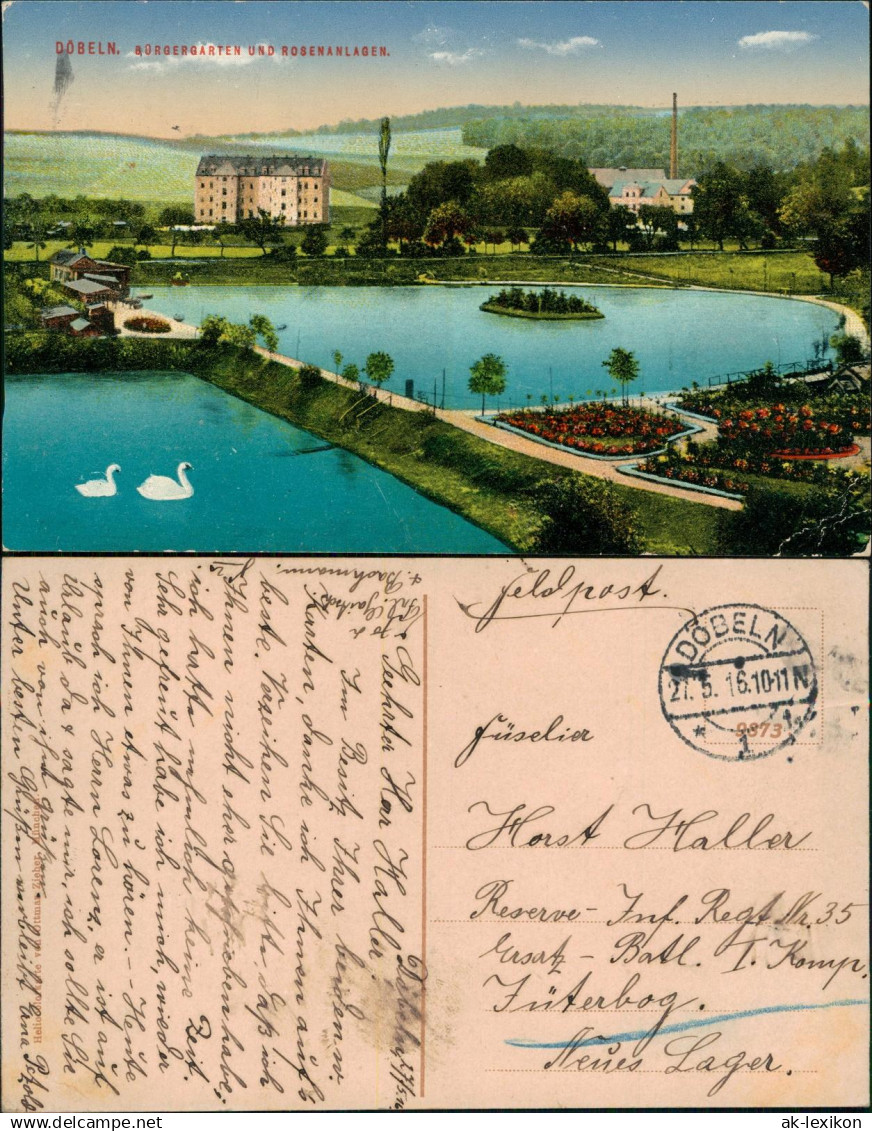 DÖBELN. BÜRGERGARTEN UND ROSENANLAGEN.
Feldpost.
DÖBELN
27.5.16.10-11N
* 1
9873
Füselier
Horst Haller
Reserve-Inf. Regt. Nr. 35
Ersatz-Batl. I. Komp.
Jüterbog.
Neues Lager.
Döbeln, 27/5.16
Geehrter Herr Haller!
Im Besitz Ihrer beiden w.
Karten, danke ich Ihnen aufs
beste. Verzeihen Sie bitte, daß ich
Ihnen nicht eher geschrieben habe,
ich hatte nämlich keine Zeit.
Sehr gefreut habe ich mich, wieder
von Ihnen etwas zu hören. - Heute
sprach ich Herrn Lorenz, er ist auf
Urlaub da & sagte mir, ich sollte Sie
auch von ihm grüßen.
Unter besten Grüßen verbleibt Petzold
Frl.
& Bachmann.
München
ak-lexikon